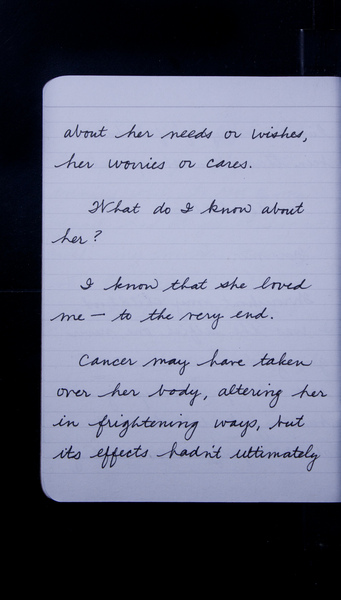 about her needs or wishes,
her worries or cares.
What do I know about
her?
I know that she loved
me — to the very end.
Cancer may have taken
over her body, altering her
in frightening ways, but
its effects hadn't ultimately